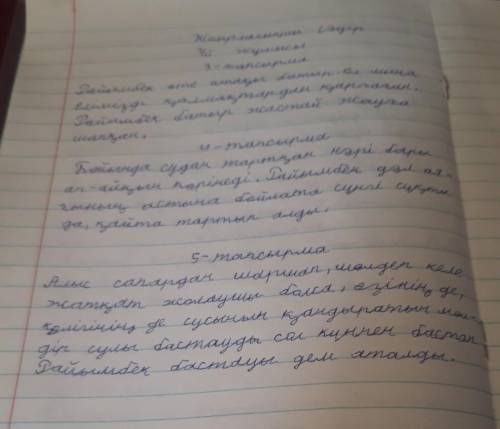 Жаңғалағанти Сәдір
Үй жұмысы
3-тапсырма
Райымбек өте атақы батыр. Ол мына
елімізді қалмақтардан қорғаған.
Райымбек батыр жастай жауға
шапқан.
4-тапсырма
Бойында судан тартқан нәрі бары
ап-айқын көрінеді. Райымбек дәл ая-
ғының астына бойлата сүңгі сұқты
да, қайта тартып алды.
5-тапсырма
Алыс сапардан шаршап, шөлдеп келе
жатқат жолаушы болса, өзінің де,
көлігінің де сусынын қандыратын мөл-
дір сулы бастауды сол күннен бастап
Райымбек бастауы деп аталды.